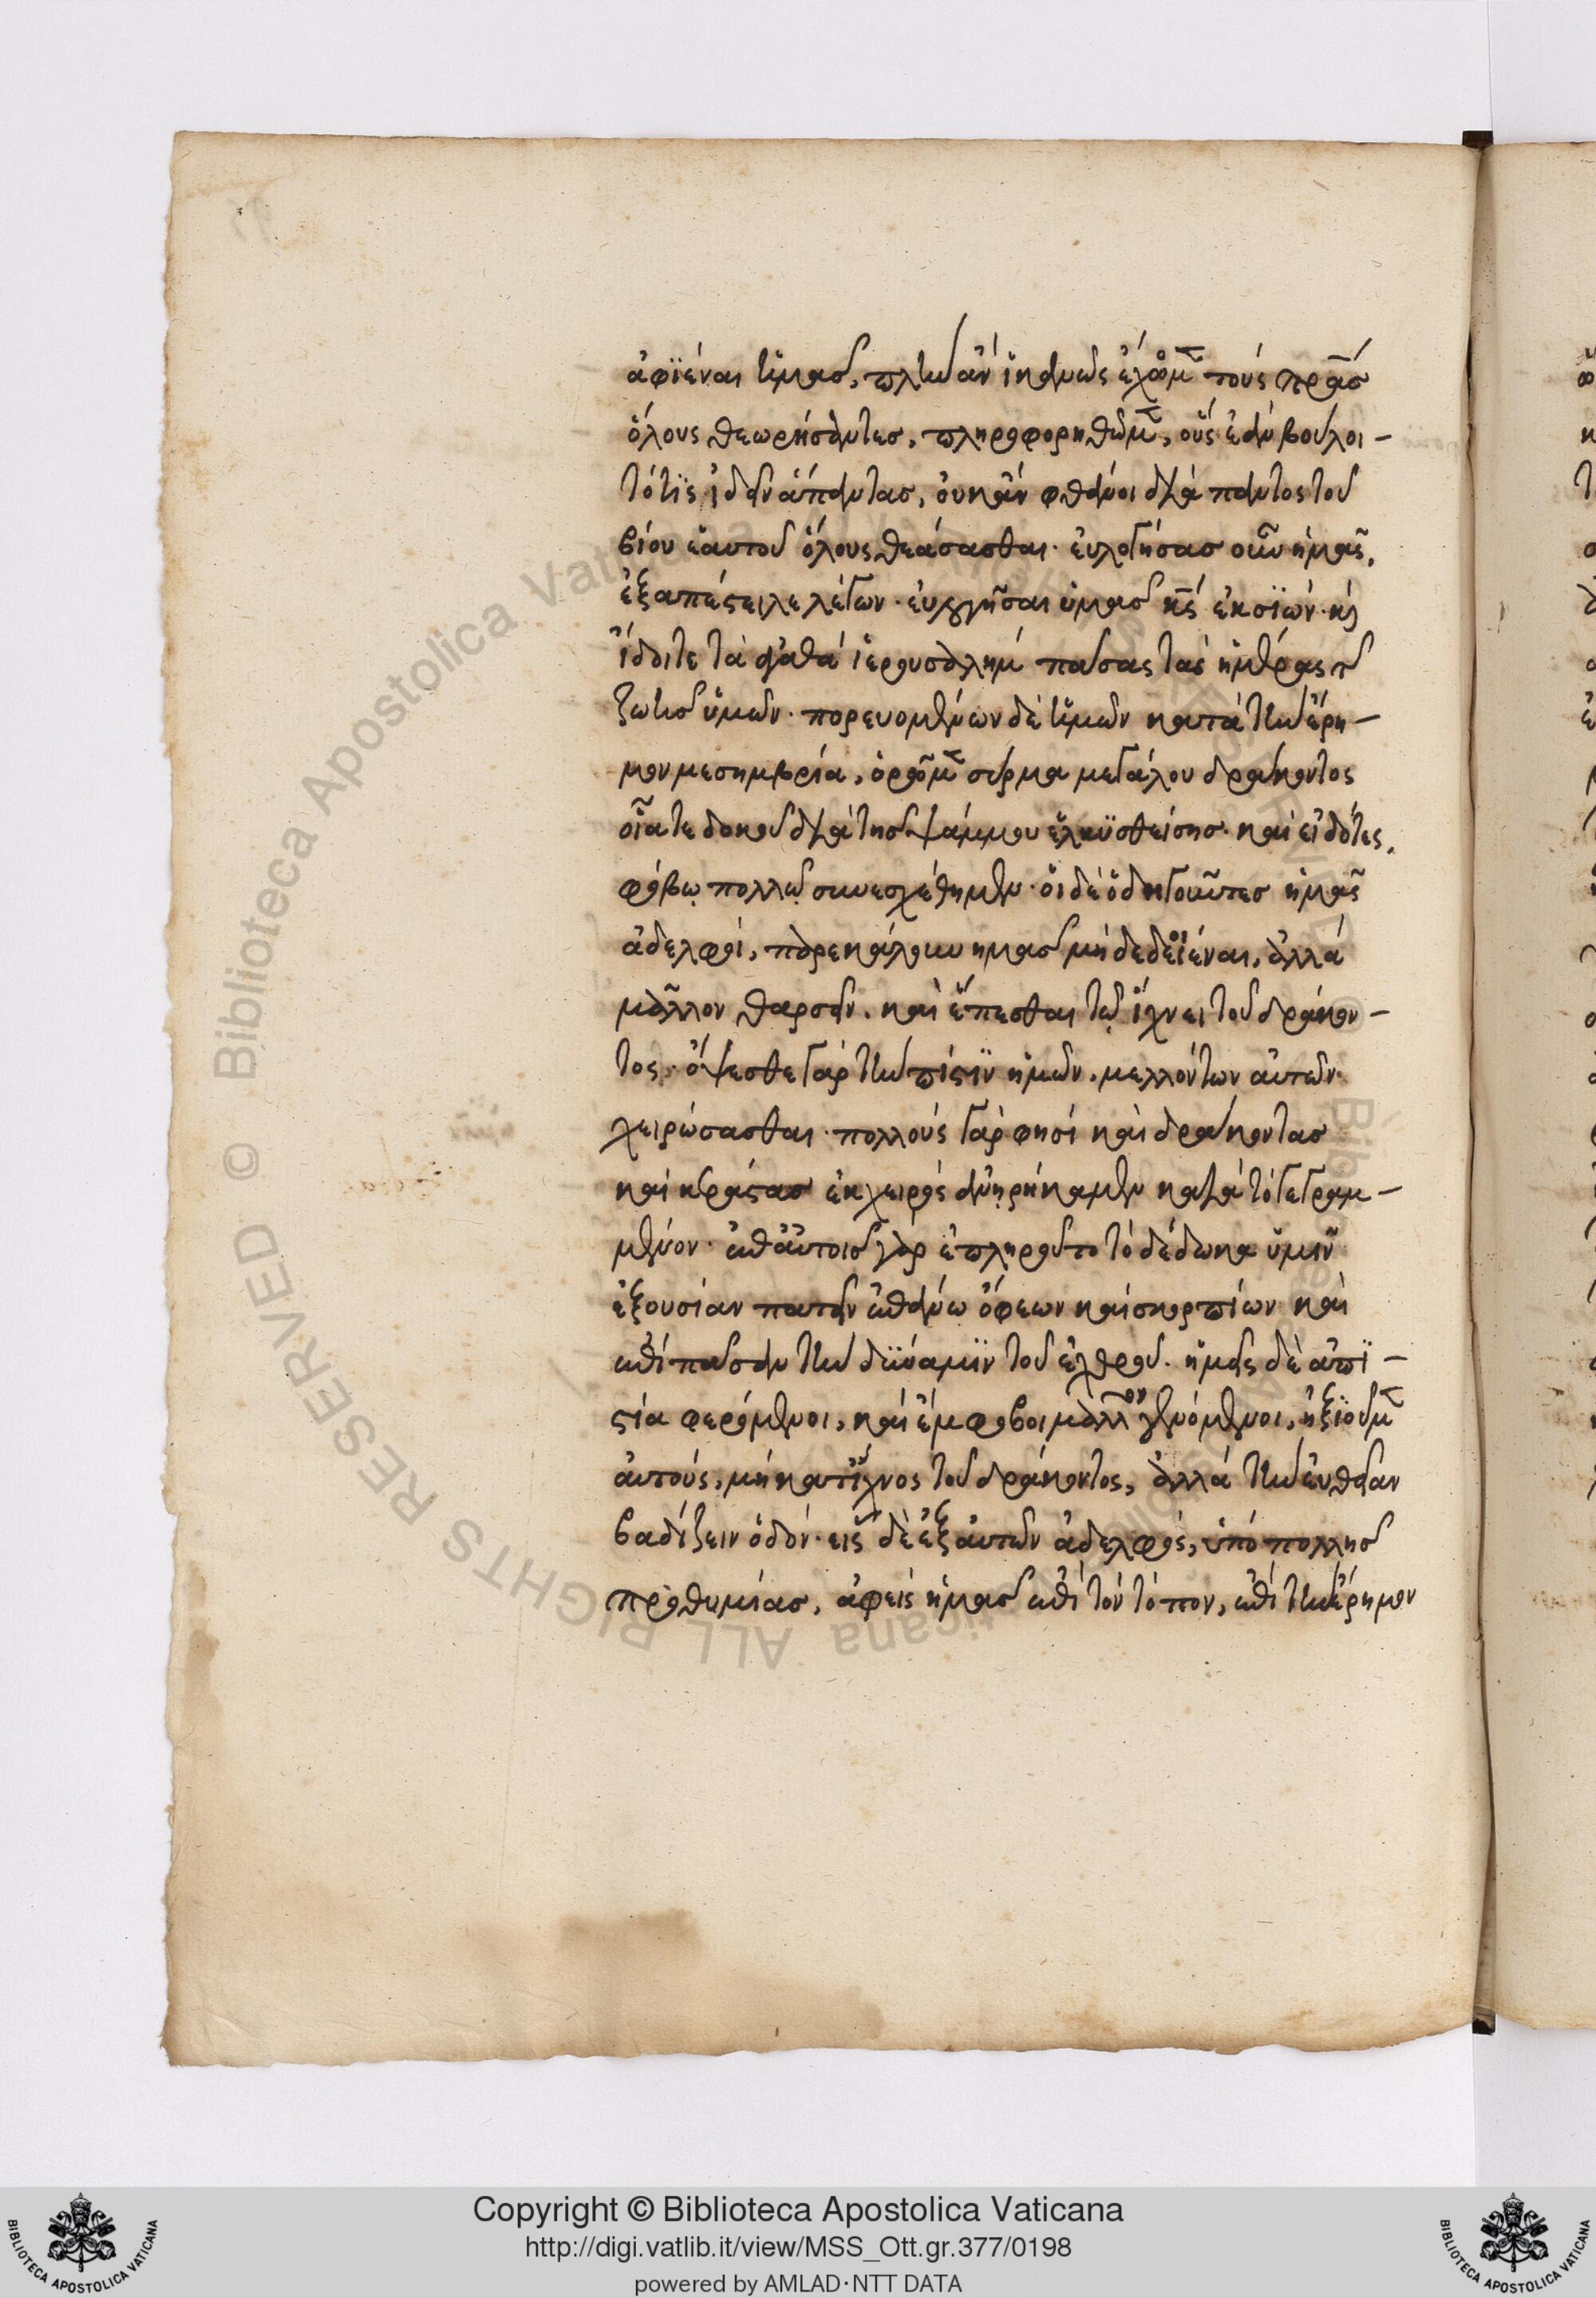 ἀφϊέναι ἡμᾶς, πλὴν ἂν ἱκανῶς ἔχωμ̅ τοὺς πρ̅ας
ὅλους θεωρήσαντες, πληροφορηθῶμ̅, οὓς ἐὰν βούλοι-
τό τις ἰδεῖν ἅπαντας, οὐκ ἂν φθάνοι διὰ παντὸς τοῦ
βίου ἑαυτοῦ ὅλους θεάσασθαι. εὐλογήσας οὖν ἡμᾶς,
ἐξαπέστειλε λέγων. εὐλογῆσαι ὑμᾶς κ̅ς ἐκ σϊών. κὶ
ἴδοιτε τὰ ἀγαθὰ ἱερουσαλὴμ πάσας τὰς ἡμέρας τ
ζωῆς ὑμῶν. πορευομένων δὲ ἡμῶν κατὰ τὴν ἔρη-
μον μεσημβρία, ὁρῶμ̅ σύρμα μεγάλου δράκοντος
οἷά τε δοκοῦ διὰ τῆς ψάμμου ἑλκϋσθείσης. καὶ εἰδότες,
φόβῳ πολλῷ συνεσχέθημεν. οἱ δὲ ὁδηγοῦντες ἡμᾶς
ἀδελφοὶ, παρεκάλουν ἡμᾶς μὴ δεδοιέναι, ἀλλὰ
μᾶλλον θαρσεῖν. καὶ ἕπεσθαι τῷ ἴχνει τοῦ δράκον-
τος. ὄψεσθε γὰρ τὴν πίστϊν ἡμῶν. μελλόντων αὐτῶν
χειρώσασθαι. πολλοὺς γὰρ φησὶ καὶ δράκοντας
καὶ κεράστας ἐκ χειρὸς ἀνῃρήκαμεν κατὰ τὸ γεγραμ-
μένον. ἐπ' αὐτοῖς γὰρ ἐπληροῦτο τὸ δέδωκα ὑμῖν
ἐξουσίαν πατεῖν ἐπάνω ὄφεων καὶ σκορπίων καὶ
ἐπὶ πᾶσαν τὴν δϋναμϊν τοῦ ἐχθροῦ. ἡμεῖς δὲ ἀπϊ-
στία φερόμενοι, καὶ ἔμφοβοι μᾶλλον γενόμενοι, ἠξϊοῦμ̅
αὐτοὺς, μὴ κατ' ἴχνος τοῦ δράκοντος, ἀλλὰ τὴν εὐθεῖαν
βαδίζειν ὁδόν. εἷς δὲ ἐξ αὐτῶν ἀδελφὸς, ὑπὸ πολλῆς
προθυμίας, ἀφεὶς ἡμᾶς ἐπὶ τὸν τόπον, ἐπὶ τὴν ἔρημον
Biblioteca Apostolica Vaticana ALL RIGHTS RESERVED ©
Copyright © Biblioteca Apostolica Vaticana
http://digi.vatlib.it/view/MSS_Ott.gr.377/0198
powered by AMLAD·NTT DATA
BIBLIOTECA APOSTOLICA VATICANA
BIBLIOTECA APOSTOLICA VATICANA